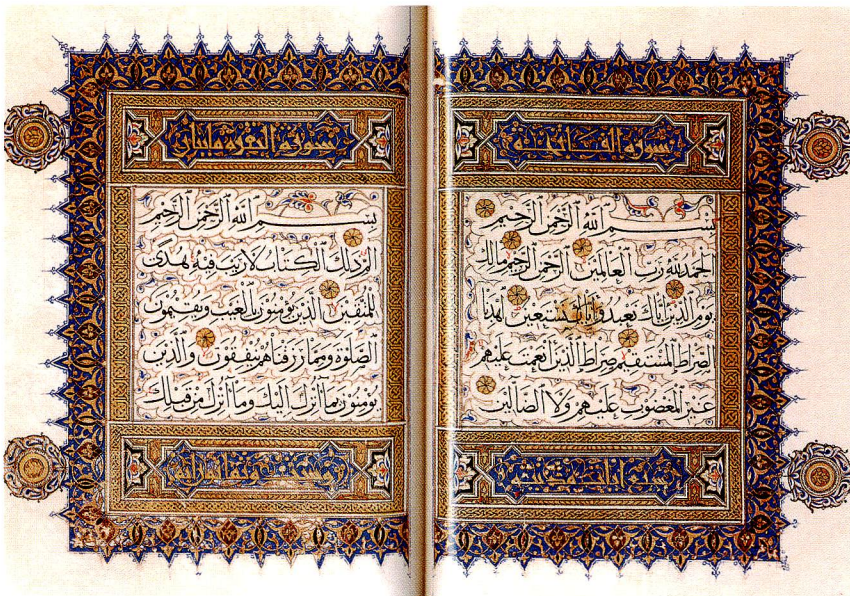 سورة الفاتحة
بسم الله الرحمن الرحيم
الحمد لله رب العالمين الرحمن الرحيم مالك
يوم الدين اياك نعبد واياك نستعين اهدنا
الصراط المستقيم صراط الذين انعمت عليهم
غير المغضوب عليهم ولا الضالين
سورة البقرة مايتان
بسم الله الرحمن الرحيم
الم ذلك الكتاب لا ريب فيه هدى
للمتقين الذين يؤمنون بالغيب ويقيمون
الصلوة ومما رزقناهم ينفقون والذين
يؤمنون بما انزل اليك وما انزل من قبلك